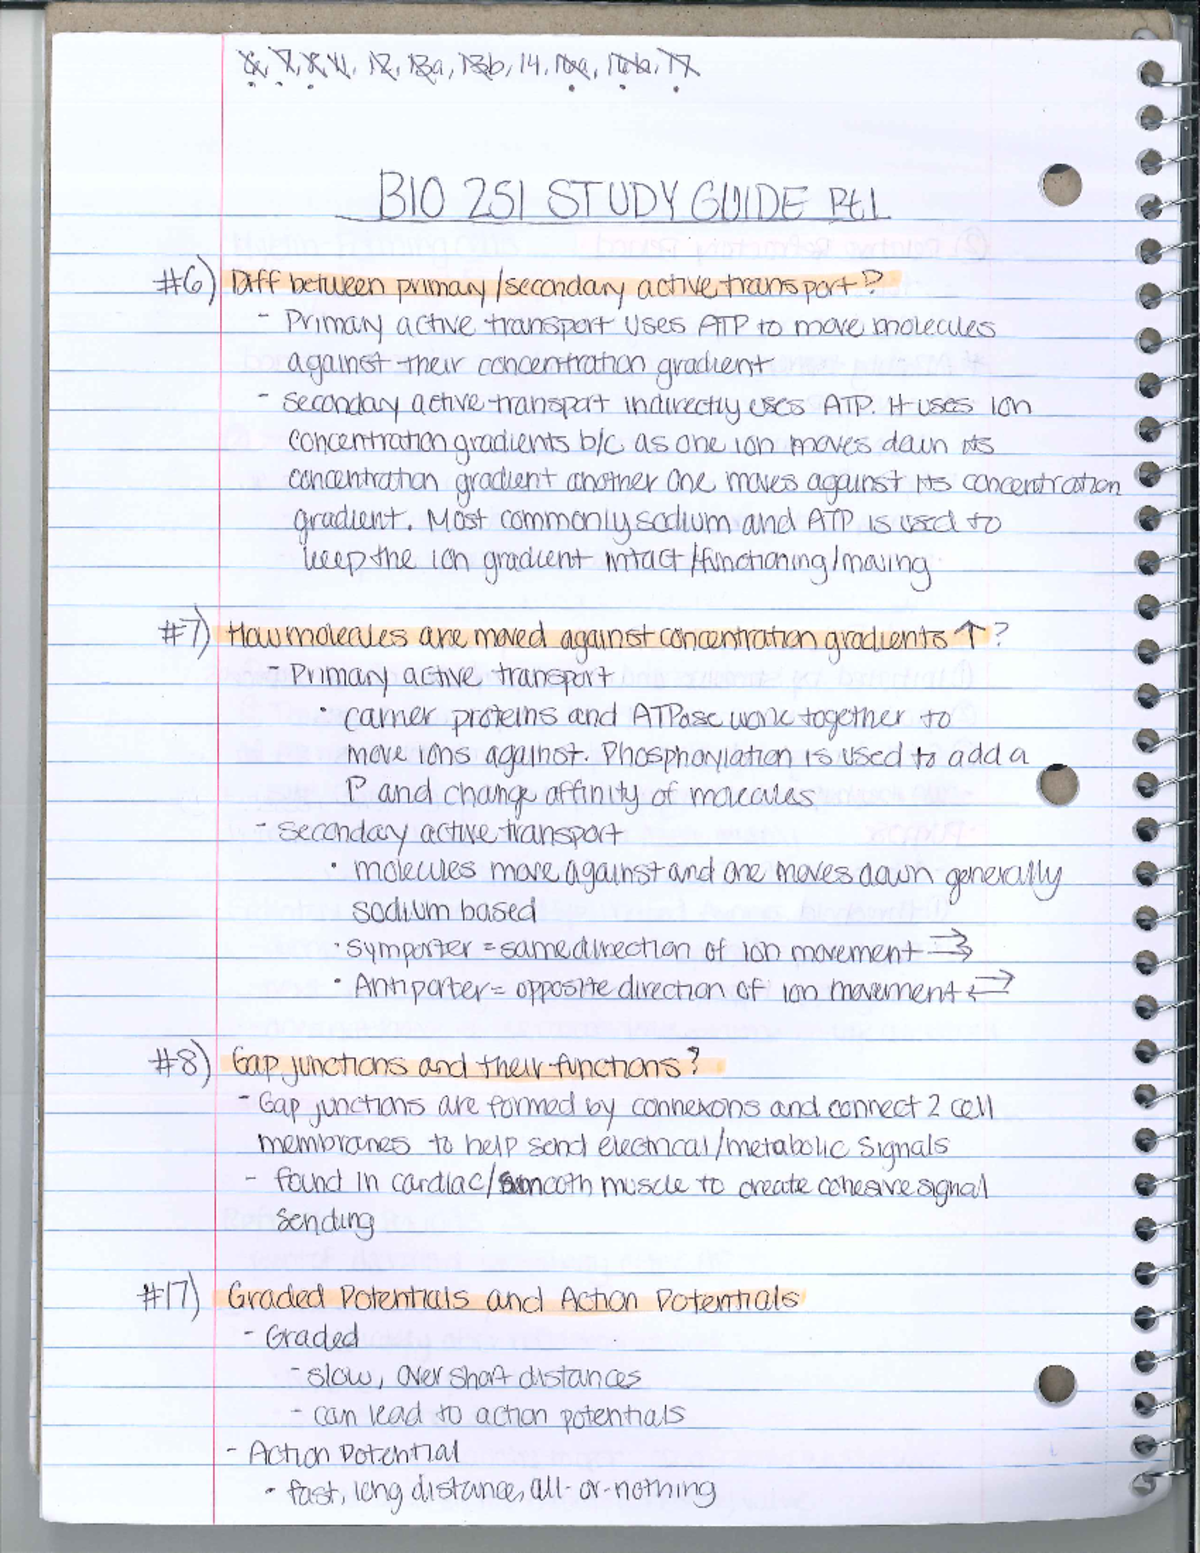 6, 7, 8, 11, 12, 13a, 13b, 14, 16a, 16b, 17
BIO 251 STUDY GUIDE Pt.1
#6) Diff between primary/secondary active transport?
- Primary active transport uses ATP to move molecules
against their concentration gradient
- secondary active transport indirectly uses ATP. It uses ion
concentration gradients b/c as one ion moves down its
concentration gradient another one moves against its concentration
gradient. Most commonly sodium and ATP is used to
keep the ion gradient intact/functioning/moving
#7) How molecules are moved against concentration gradients ↑ ?
- Primary active transport
• carrier proteins and ATPase work together to
move ions against. Phosphorylation is used to add a
P and change affinity of molecules
- secondary active transport
• molecules move against and one moves down generally
sodium based
• symporter = same direction of ion movement
• Antiporter = opposite direction of ion movement
#8) Gap junctions and their functions?
- Gap junctions are formed by connexons and connect 2 cell
membranes to help send electrical/metabolic signals
- found in cardiac/smooth muscle to create cohesive signal
sending
#17) Graded Potentials and Action Potentials
- Graded
- slow, over short distances
- can lead to action potentials
- Action Potential
• fast, long distance, all-or-nothing